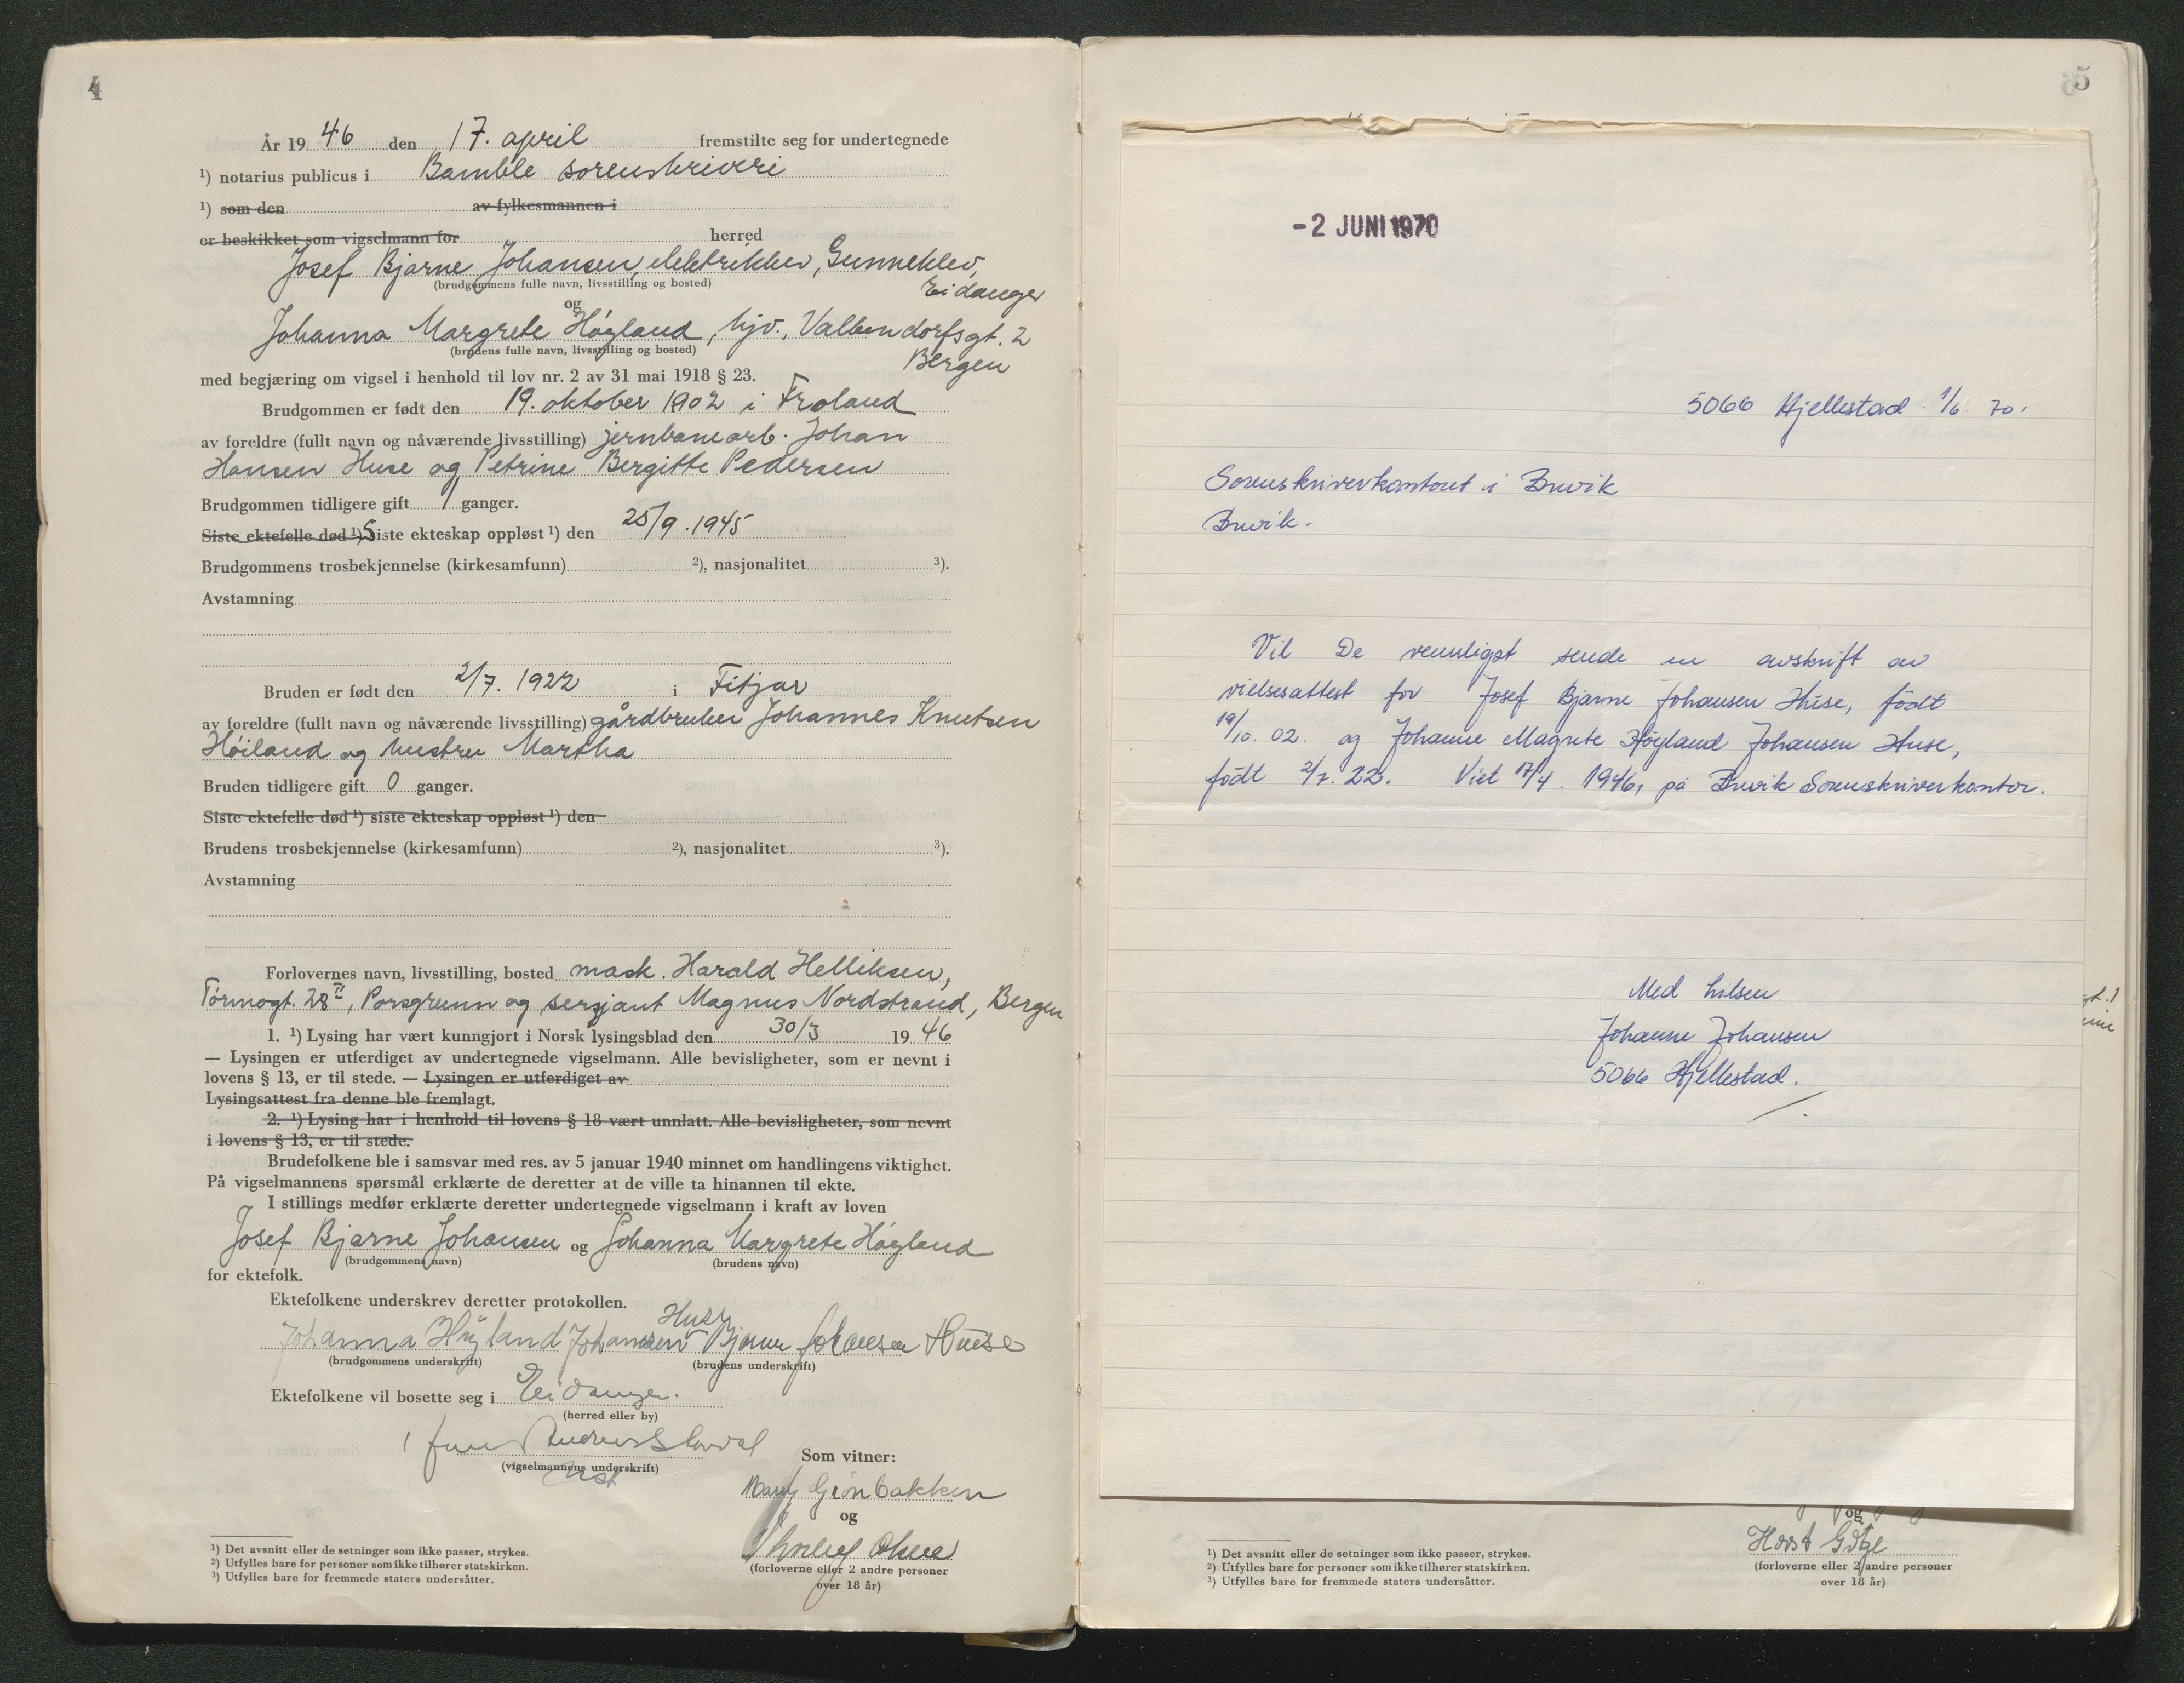 4
År 19 46 den 17. april fremstilte seg for undertegnede
¹) notarius publicus i Bamble sorenskriveri
¹) som den av fylkesmannen i
er beskikket som vigselmann for herred
Josef Bjarne Johansen, elektriker, Gunneklev,
Eidanger
(brudgommens fulle navn, livsstilling og bosted)
og
Johanna Margrete Høyland, hjv., Valkendorfsgt. 2
Bergen
(brudens fulle navn, livsstilling og bosted)
med begjæring om vigsel i henhold til lov nr. 2 av 31 mai 1918 § 23.
Brudgommen er født den 19. oktober 1902 i Froland
av foreldre (fullt navn og nåværende livsstilling) jernbanearb. Johan
Hansen Huse og Petrine Bergitte Pedersen
Brudgommen tidligere gift 1 ganger.
Siste ektefelle død ¹) Siste ekteskap oppløst ¹) den 25/9. 1945
Brudgommens trosbekjennelse (kirkesamfunn) ²), nasjonalitet ³).
Avstamning
Bruden er født den 2/7. 1922 i Fitjar
av foreldre (fullt navn og nåværende livsstilling) gårdbruker Johannes Knutsen
Høiland og hustru Martha
Bruden tidligere gift 0 ganger.
Siste ektefelle død ¹) siste ekteskap oppløst ¹) den
Brudens trosbekjennelse (kirkesamfunn) ²), nasjonalitet ³).
Avstamning
Forlovernes navn, livsstilling, bosted mask. Harald Helliksen,
Tormogt. 28 II, Porsgrunn og sersjant Magnus Nordstrand, Bergen
1. ¹) Lysing har vært kunngjort i Norsk lysingsblad den 30/3 19 46
— Lysingen er utferdiget av undertegnede vigselmann. Alle bevisligheter, som er nevnt i
lovens § 13, er til stede. — Lysingen er utferdiget av
Lysingsattest fra denne ble fremlagt.
2. ¹) Lysing har i henhold til lovens § 18 vært unnlatt. Alle bevisligheter, som nevnt
i lovens § 13, er til stede.
Brudefolkene ble i samsvar med res. av 5 januar 1940 minnet om handlingens viktighet.
På vigselmannens spørsmål erklærte de deretter at de ville ta hinannen til ekte.
I stillings medfør erklærte deretter undertegnede vigselmann i kraft av loven
Josef Bjarne Johansen og Johanna Margrete Høyland
(brudgommens navn) (brudens navn)
for ektefolk.
Ektefolkene underskrev deretter protokollen.
Huse
Johanna Høyland Johansen Bjarne Johansen Huse
(brudgommens underskrift) (brudens underskrift)
Ektefolkene vil bosette seg i Eidanger.
(herred eller by)
(vigselmannens underskrift)
Som vitner:
Grønbakken
og
(forloverne eller 2 andre personer
over 18 år)
¹) Det avsnitt eller de setninger som ikke passer, strykes.
²) Utfylles bare for personer som ikke tilhører statskirken.
³) Utfylles bare for fremmede staters undersåtter.
5
-2 JUNI 1970
5066 Hjellestad. 1/6. 70.
Sorenskriverkontoret i Brevik
Brevik.
Vil De vennligst sende en avskrift av
vielsesattest for Josef Bjarne Johansen Huse, født
19/10. 02. og Johanne Magrete Høyland Johansen Huse,
født 2/7. 22. Viet 17/4. 1946, på Brevik Sorenskriverkontor.
Med hilsen
Johanne Johansen
5066 Hjellestad.
og
Horst Götze
(forloverne eller 2 andre personer
over 18 år)
¹) Det avsnitt eller de setninger som ikke passer, strykes.
²) Utfylles bare for personer som ikke tilhører statskirken.
³) Utfylles bare for fremmede staters undersåtter.